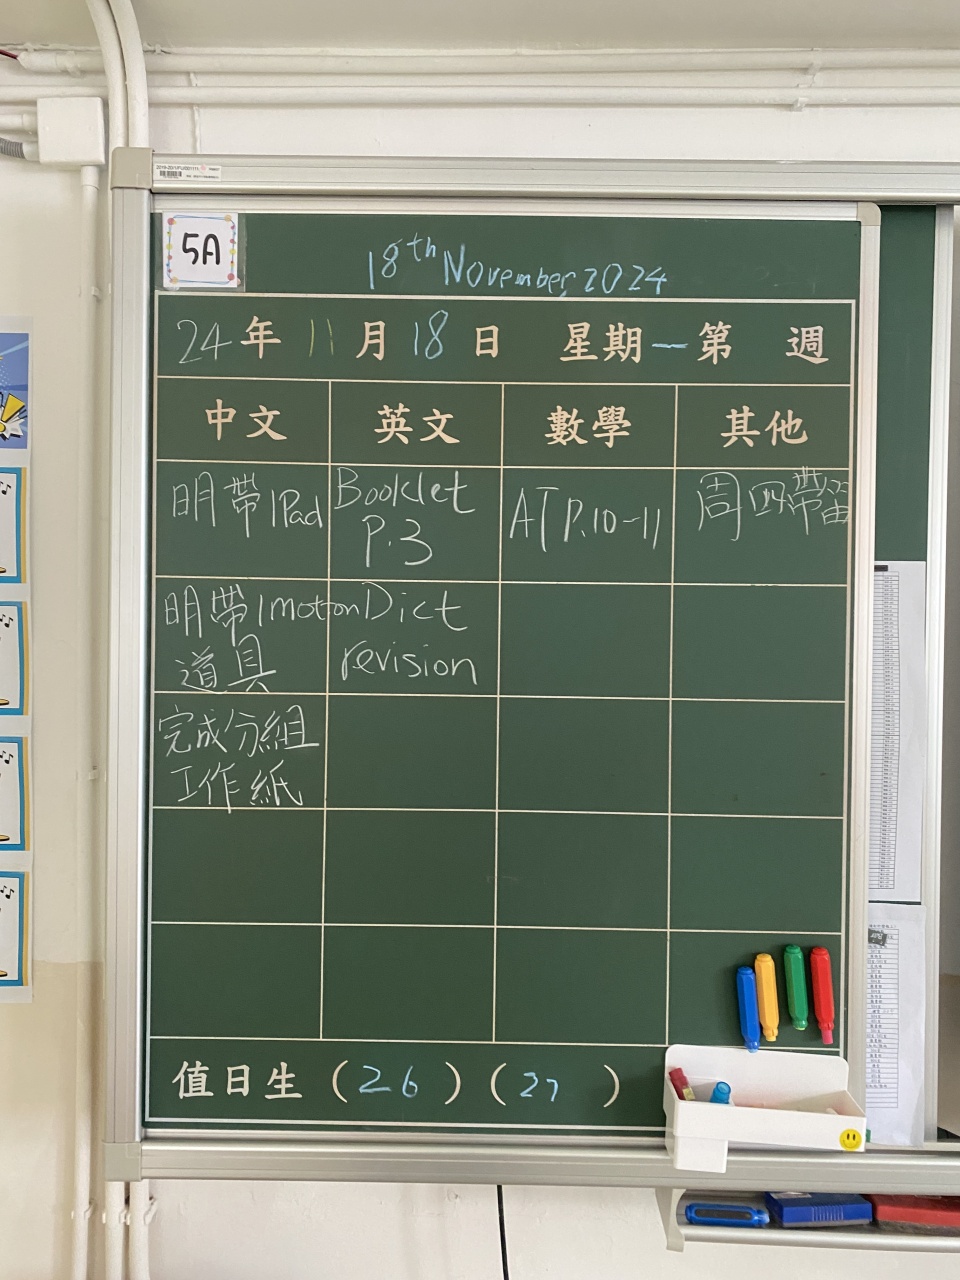 5A
18th November 2024
24年11月18日 星期一第 週
中文 英文 數學 其他
明帶IPad
Booklet
P.3
AT P.10-11
周四帶笛
明帶1motion
道具
Dict
revision
完成分組
工作紙
值日生(26)(27 )